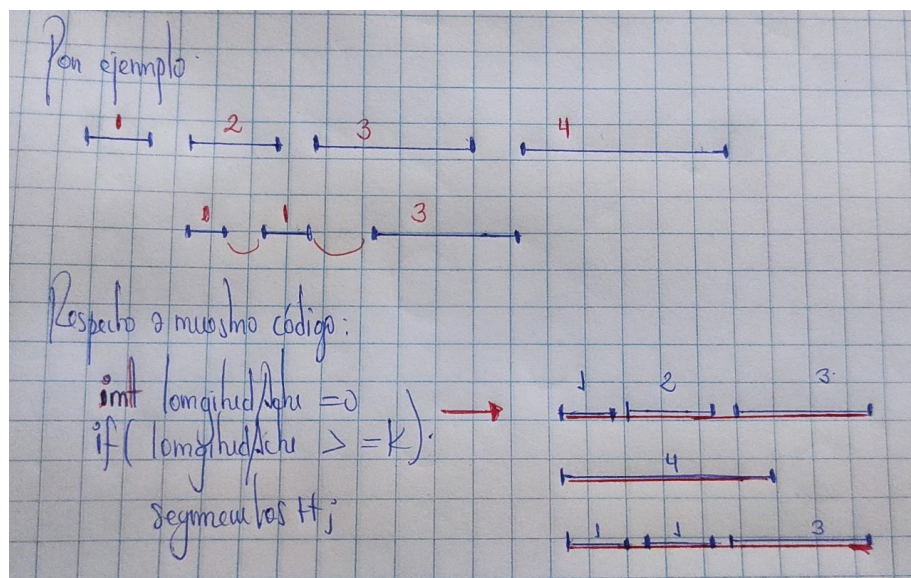 Por ejemplo:
1 2 3 4
1 1 3
Respecto a nuestro código:
int longitudActu = 0
if( longitudActu >= K).
segmentos++;
1 2 3
4
1 1 3